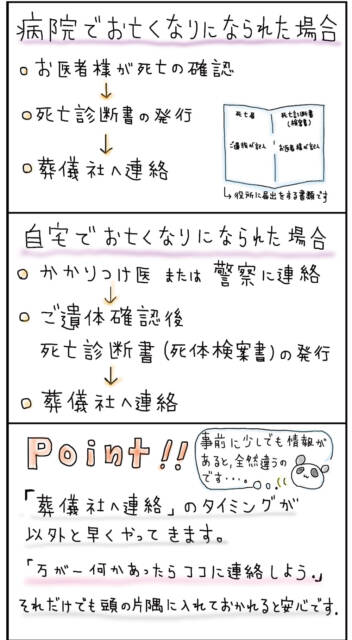 病院でお亡くなりになられた場合
お医者様が死亡の確認
↓
死亡診断書の発行
↓
葬儀社へ連絡
死亡者
死亡診断書
(検案書)
ご遺族が記入
お医者様が記入
↳役所に届出をする書類です
自宅でお亡くなりになられた場合
かかりつけ医 または 警察に連絡
↓
ご遺体確認後
死亡診断書(死体検案書)の発行
↓
葬儀社へ連絡
Point!!
事前に少しでも情報が
あると、全然違うの
です・・・。
「葬儀社へ連絡」のタイミングが
以外と早くやってきます。
「万が一何かあったらココに連絡しよう。」
それだけでも頭の片隅に入れておかれると安心です。